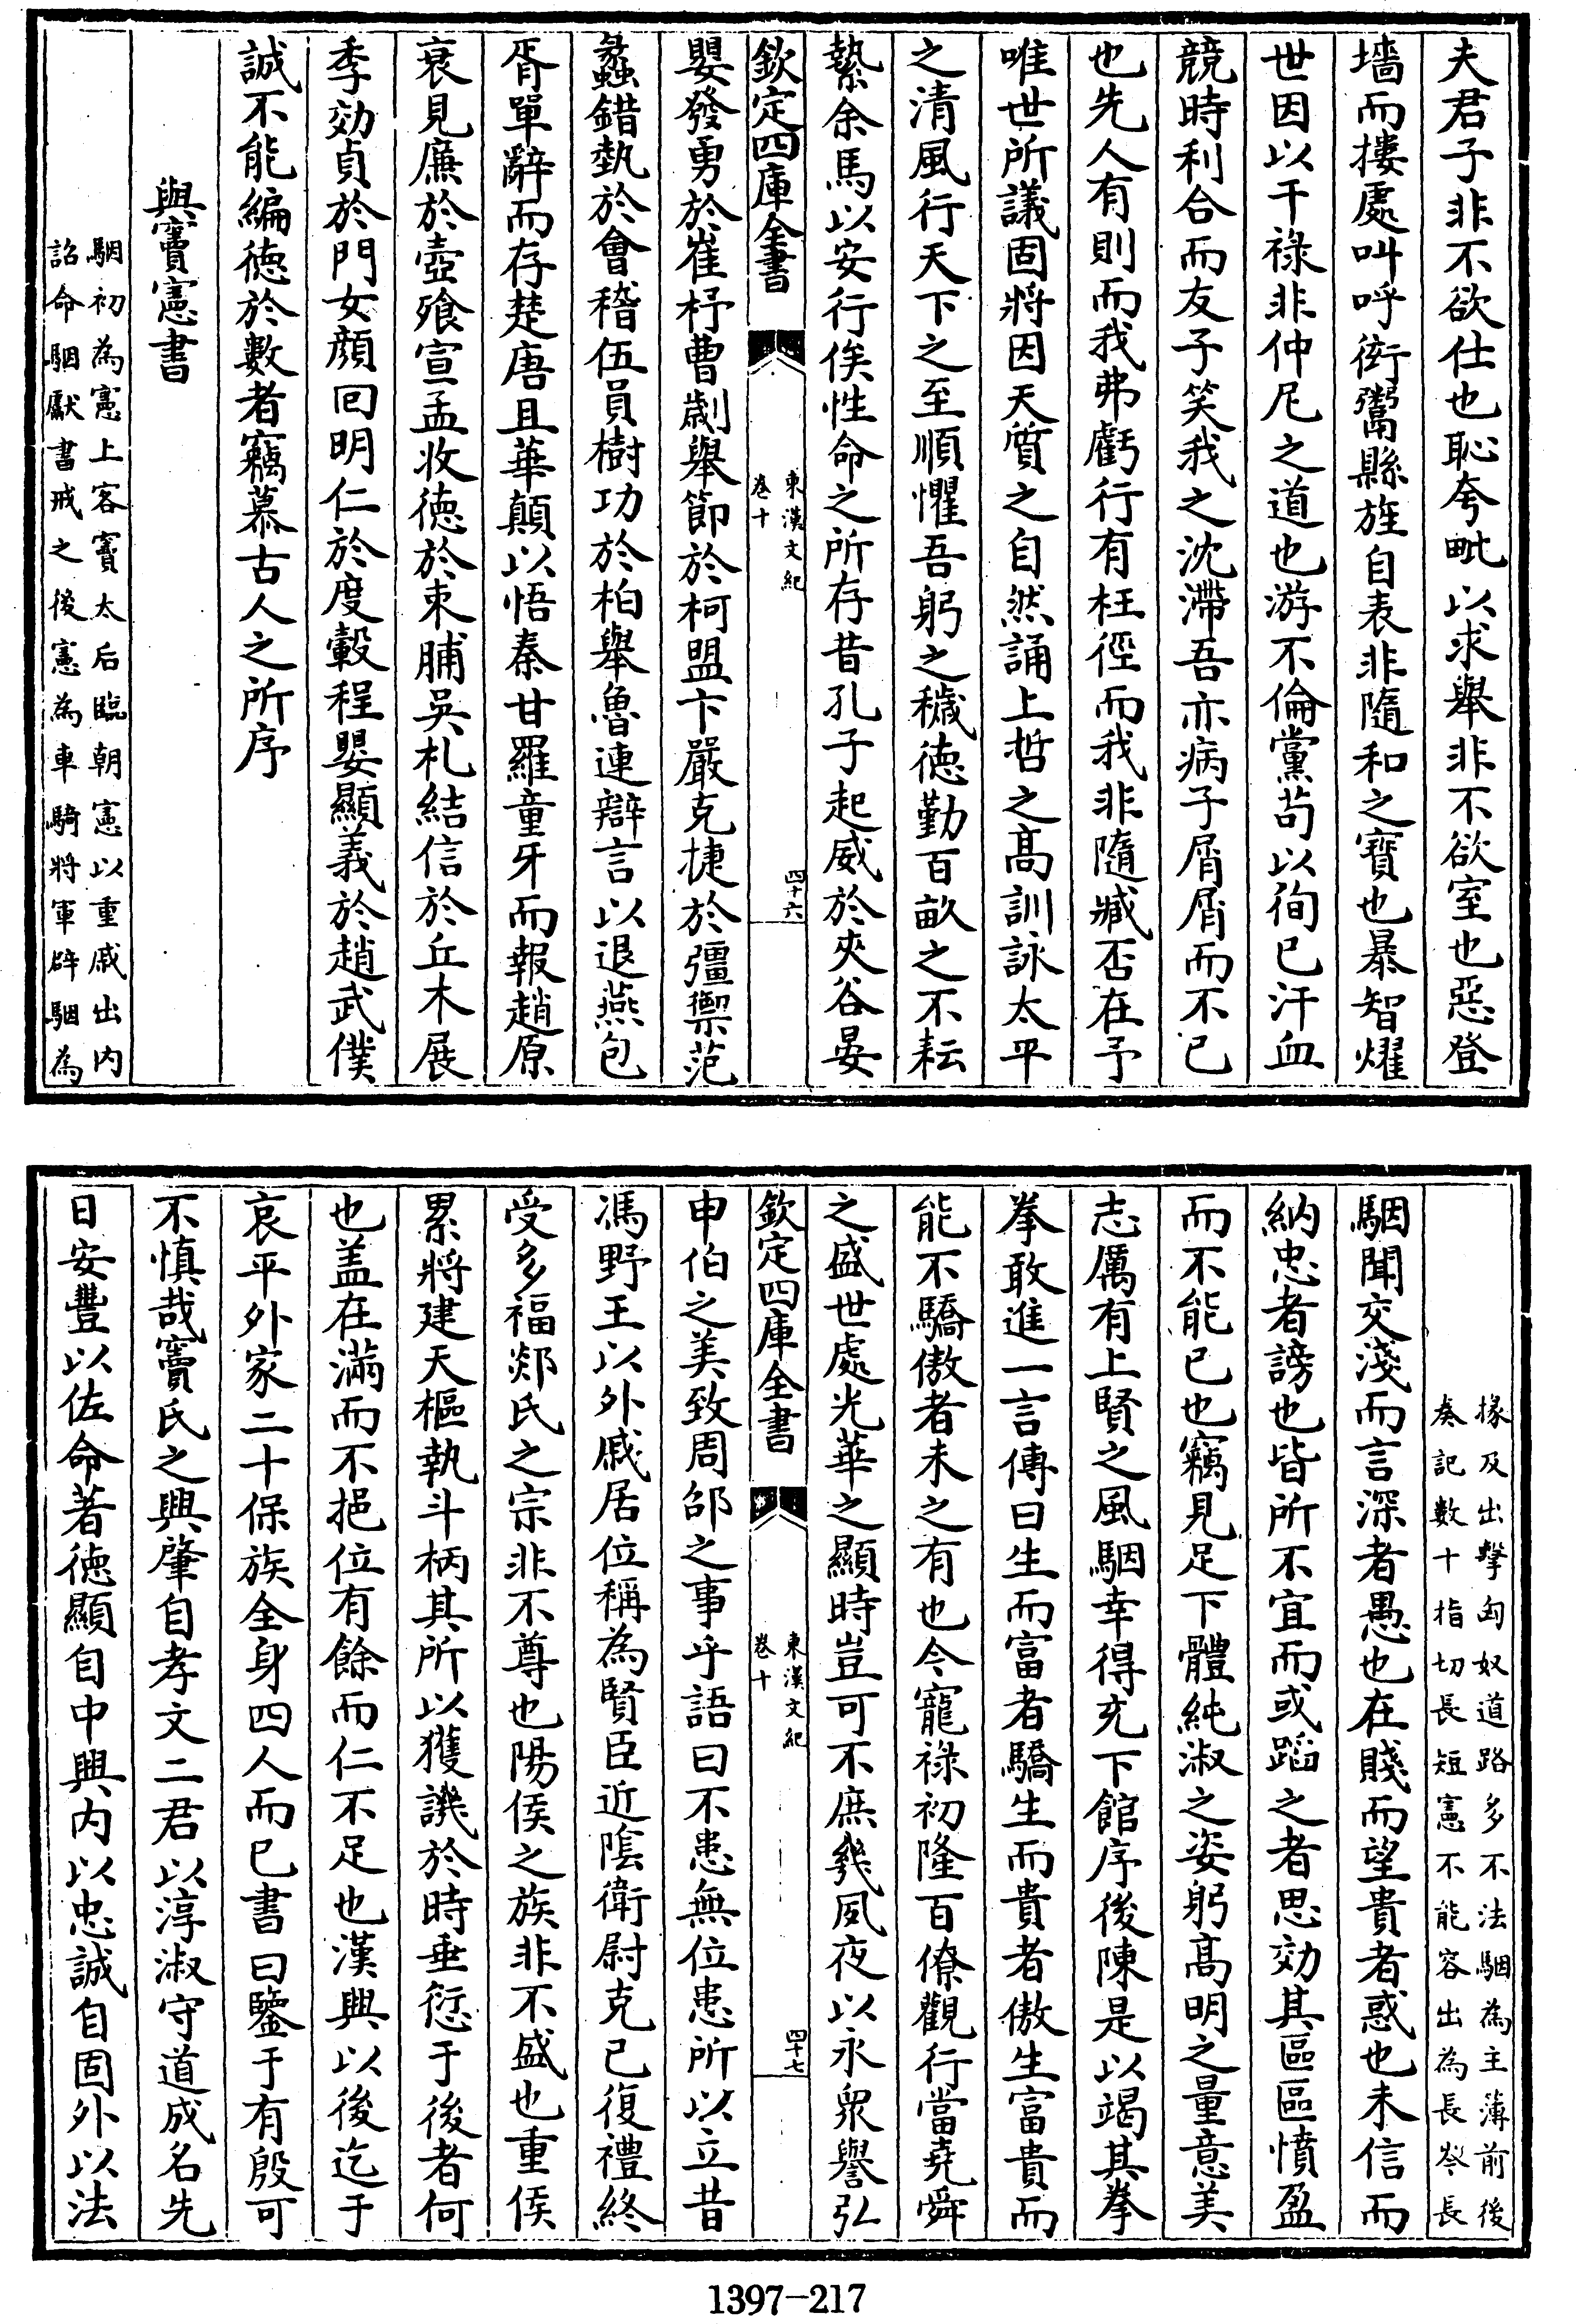 夫君子非不欲仕也恥夸毗以求舉非不欲室也惡登
墻而摟處叫呼衒鬻縣旌自表非隨和之寶也暴智燿
世因以干祿非仲尼之道也游不倫黨苟以徇已汗血
競時利合而友子笑我之沈滯吾亦病子屑屑而不已
也先人有則而我弗虧行有枉徑而我非隨臧否在予
唯世所議固將因天質之自然誦上哲之髙訓詠太平
之清風行天下之至順懼吾躬之穢徳勤百畝之不耘
縶余馬以安行俟性命之所存昔孔子起威於夾谷晏
欽定四庫全書
東漢文紀
卷十
四十六
嬰發勇於崔杼曹劌舉節於柯盟卞嚴克捷於彊禦范
蠡錯埶於會稽伍員樹功於柏舉魯連辯言以退燕包
胥單辭而存楚唐且華顛以悟秦甘羅童牙而報趙原
衰見廉於壺飱宣孟收徳於束脯吳札結信於丘木展
季効貞於門女顔回明仁於度轂程嬰顯義於趙武僕
誠不能編徳於數者竊慕古人之所序
與竇憲書
駰初為憲上客竇太后臨朝憲以重戚出内
詔命駰獻書戒之後憲為車騎將軍辟駰為
掾及出擊匈奴道路多不法駰為主簿前後
奏記數十指切長短憲不能容出為長岑長
駰聞交淺而言深者愚也在賤而望貴者惑也未信而
納忠者謗也皆所不宜而或蹈之者思効其區區憤盈
而不能已也竊見足下體純淑之姿躬髙明之量意美
志厲有上賢之風駰幸得充下館序後陳是以竭其拳
拳敢進一言傳曰生而富者驕生而貴者傲生富貴而
能不驕傲者未之有也今寵祿初隆百僚觀行當堯舜
之盛世處光華之顯時豈可不庶㡬夙夜以永衆譽弘
欽定四庫全書
東漢文紀
卷十
四十七
申伯之美致周邵之事乎語曰不患無位患所以立昔
馮野王以外戚居位稱為賢臣近陰衛尉克已復禮終
受多福郯氏之宗非不尊也陽侯之族非不盛也重侯
累將建天樞執斗柄其所以獲譏於時垂愆于後者何
也盖在滿而不挹位有餘而仁不足也漢興以後迄于
哀平外家二十保族全身四人而已書曰鑒于有殷可
不慎哉竇氏之興肇自孝文二君以淳淑守道成名先
日安豐以佐命著徳顯自中興内以忠誠自固外以法
1397-217